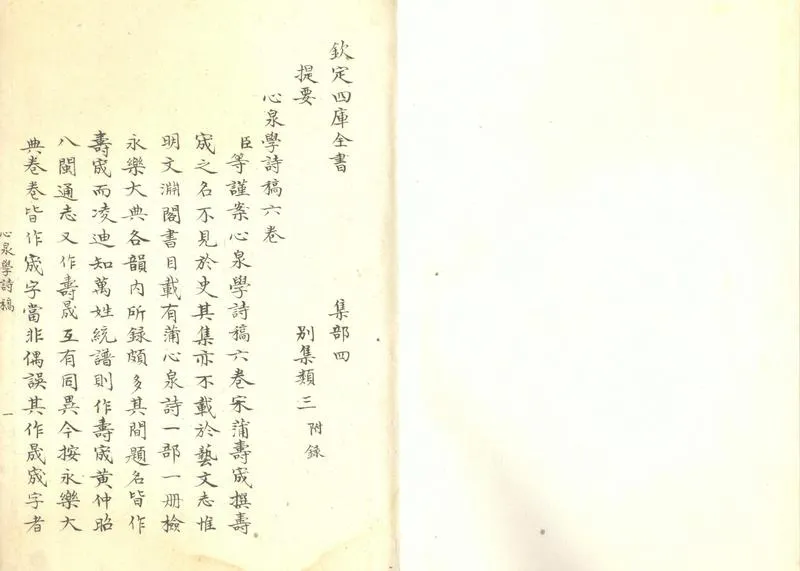 欽定四庫全書 集部四
提要 別集類三 附錄
心泉學詩稿六卷
臣等謹案心泉學詩稿六卷宋蒲壽宬撰壽
宬之名不見於史其集亦不載於藝文志惟
明文淵閣書目載有蒲心泉詩一部一册檢
永樂大典各韻内所録頗多其間題名皆作
壽宬而凌迪知萬姓統譜則作壽宬黄仲昭
八閩通志又作壽晟互有同異今按永樂大
典卷卷皆作宬字當非偶誤其作晟宬字者
心泉學詩稿 一